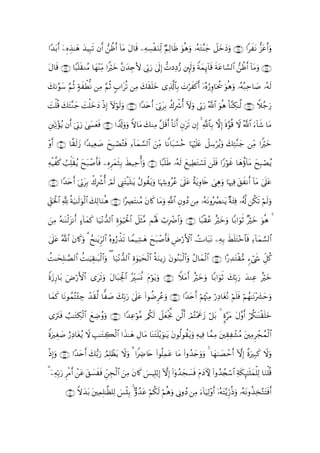 وَأَعَزُّ نَفَرًا ۝ وَدَخَلَ جَنَّتَهُۥ وَهُوَ ظَالِمٌ لِّنَفْسِهِۦ قَالَ مَآ أَظُنُّ أَن تَبِيدَ هَٰذِهِۦٓ أَبَدًا
۝ وَمَآ أَظُنُّ ٱلسَّاعَةَ قَآئِمَةً وَلَئِن رُّدِدتُّ إِلَىٰ رَبِّى لَأَجِدَنَّ خَيْرًا مِّنْهَا مُنقَلَبًا ۝ قَالَ
لَهُۥ صَاحِبُهُۥ وَهُوَ يُحَاوِرُهُۥٓ أَكَفَرْتَ بِٱلَّذِى خَلَقَكَ مِن تُرَابٍ ثُمَّ مِن نُّطْفَةٍ ثُمَّ سَوَّىٰكَ
رَجُلًا ۝ لَّٰكِنَّا۠ هُوَ ٱللَّهُ رَبِّى وَلَآ أُشْرِكُ بِرَبِّىٓ أَحَدًا ۝ وَلَوْلَآ إِذْ دَخَلْتَ جَنَّتَكَ قُلْتَ
مَا شَآءَ ٱللَّهُ لَا قُوَّةَ إِلَّا بِٱللَّهِ ۚ إِن تَرَنِ أَنَا۠ أَقَلَّ مِنكَ مَالًا وَوَلَدًا ۝ فَعَسَىٰ رَبِّىٓ أَن يُؤْتِيَنِ
خَيْرًا مِّن جَنَّتِكَ وَيُرْسِلَ عَلَيْهَا حُسْبَانًا مِّنَ ٱلسَّمَآءِ فَتُصْبِحَ صَعِيدًا زَلَقًا ۝ أَوْ
يُصْبِحَ مَآؤُهَا غَوْرًا فَلَن تَسْتَطِيعَ لَهُۥ طَلَبًا ۝ وَأُحِيطَ بِثَمَرِهِۦ فَأَصْبَحَ يُقَلِّبُ كَفَّيْهِ
عَلَىٰ مَآ أَنفَقَ فِيهَا وَهِىَ خَاوِيَةٌ عَلَىٰ عُرُوشِهَا وَيَقُولُ يَٰلَيْتَنِى لَمْ أُشْرِكْ بِرَبِّىٓ أَحَدًا ۝
وَلَمْ تَكُن لَّهُۥ فِئَةٌ يَنصُرُونَهُۥ مِن دُونِ ٱللَّهِ وَمَا كَانَ مُنتَصِرًا ۝ هُنَالِكَ ٱلْوَلَٰيَةُ لِلَّهِ ٱلْحَقِّ
ۚ هُوَ خَيْرٌ ثَوَابًا وَخَيْرٌ عُقْبًا ۝ وَٱضْرِبْ لَهُم مَّثَلَ ٱلْحَيَوٰةِ ٱلدُّنْيَا كَمَآءٍ أَنزَلْنَٰهُ مِنَ
ٱلسَّمَآءِ فَٱخْتَلَطَ بِهِۦ نَبَاتُ ٱلْأَرْضِ فَأَصْبَحَ هَشِيمًا تَذْرُوهُ ٱلرِّيَٰحُ ۗ وَكَانَ ٱللَّهُ عَلَىٰ
كُلِّ شَىْءٍ مُّقْتَدِرًا ۝ ٱلْمَالُ وَٱلْبَنُونَ زِينَةُ ٱلْحَيَوٰةِ ٱلدُّنْيَا ۖ وَٱلْبَٰقِيَٰتُ ٱلصَّٰلِحَٰتُ
خَيْرٌ عِندَ رَبِّكَ ثَوَابًا وَخَيْرٌ أَمَلًا ۝ وَيَوْمَ نُسَيِّرُ ٱلْجِبَالَ وَتَرَى ٱلْأَرْضَ بَارِزَةً
وَحَشَرْنَٰهُمْ فَلَمْ نُغَادِرْ مِنْهُمْ أَحَدًا ۝ وَعُرِضُوا۟ عَلَىٰ رَبِّكَ صَفًّا لَّقَدْ جِئْتُمُونَا كَمَا
خَلَقْنَٰكُمْ أَوَّلَ مَرَّةٍۭ ۚ بَلْ زَعَمْتُمْ أَلَّن نَّجْعَلَ لَكُم مَّوْعِدًا ۝ وَوُضِعَ ٱلْكِتَٰبُ فَتَرَى
ٱلْمُجْرِمِينَ مُشْفِقِينَ مِمَّا فِيهِ وَيَقُولُونَ يَٰوَيْلَتَنَا مَالِ هَٰذَا ٱلْكِتَٰبِ لَا يُغَادِرُ صَغِيرَةً
وَلَا كَبِيرَةً إِلَّآ أَحْصَىٰهَا ۚ وَوَجَدُوا۟ مَا عَمِلُوا۟ حَاضِرًا ۗ وَلَا يَظْلِمُ رَبُّكَ أَحَدًا ۝ وَإِذْ
قُلْنَا لِلْمَلَٰٓئِكَةِ ٱسْجُدُوا۟ لِءَادَمَ فَسَجَدُوٓا۟ إِلَّآ إِبْلِيسَ كَانَ مِنَ ٱلْجِنِّ فَفَسَقَ عَنْ أَمْرِ رَبِّهِۦٓ ۗ
أَفَتَتَّخِذُونَهُۥ وَذُرِّيَّتَهُۥٓ أَوْلِيَآءَ مِن دُونِى وَهُمْ لَكُمْ عَدُوٌّۢ ۚ بِئْسَ لِلظَّٰلِمِينَ بَدَلًا ۝